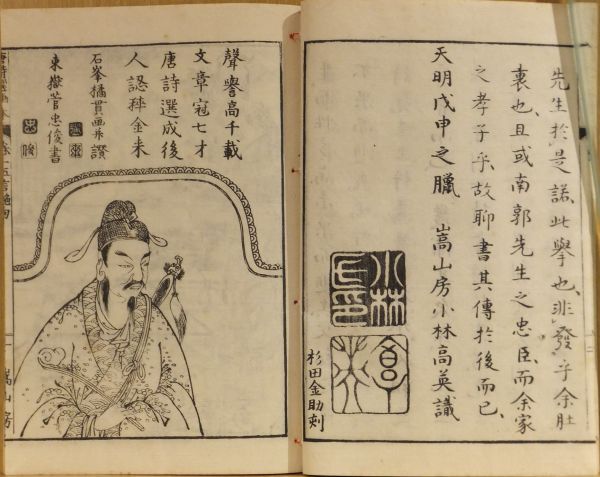 先生於是諾、此擧也、非發乎余肚
裏也、且或南郭先生之忠臣、而余家
之孝子乎、故聊書其傳於後而已、
天明戊申之臘　嵩山房小林高英識
小林
高英
杉田金助刻
聲譽高千載
文章冠七才
唐詩選成後
人認粹金来
石峯橘貫画并讃
東嶽菅忠俊書
忠俊
嵩山房